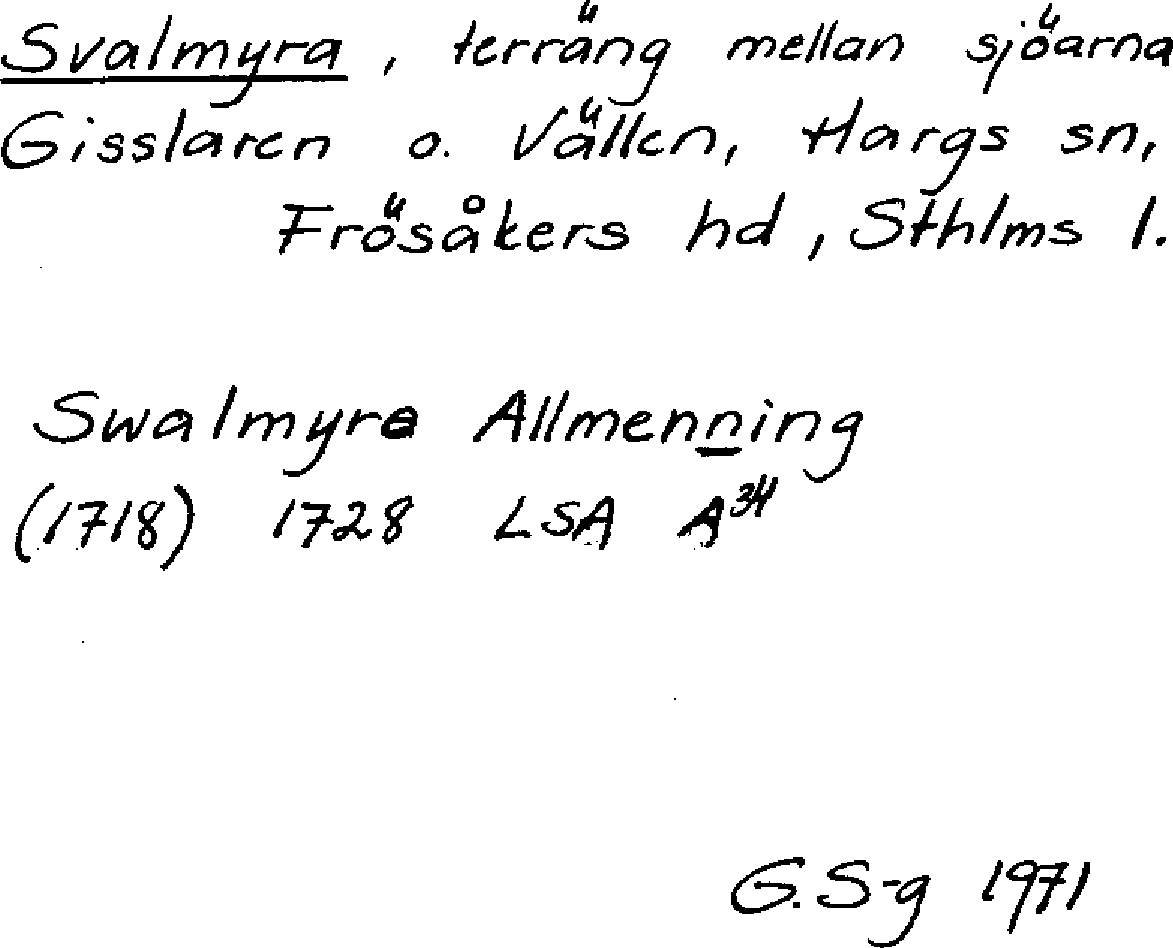 Svalmyra, terräng mellan sjöarna
Gisslaren o. Vällen, Hargs sn,
Frösåkers hd, Sthlms l.
Swalmyra Allmenning
(1718) 1728 LSA A³⁴
G.S-g 1971